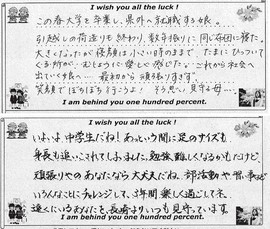 I wish you all the luck !
この春大学を卒業し、県外へ就職する娘。
引越しの荷造りも終わり、数年振りに同じ布団に寝た。
大きくなったが寝顔は小さい時のままで、たまにひっついて
くる所が、むしょうに愛しく感じたな。これから社会へ
出ていく娘へ…最初から頑張りすぎず、
笑顔でぼちぼちいこうよ! そう思う、見守る母…。
I am behind you one hundred percent.
I wish you all the luck !
いよいよ、中学生だね! あっという間に足のサイズも
身長も追いこされてしまいました。勉強、難しくなるかもだけど、
頑張りやのあなたなら大丈夫だね。部活動や習い事など
いろんなことにチャレンジして、3年間、楽しく過ごしてネ。
遠くにいるあなたを、長崎よりいつも見守っています。
I am behind you one hundred percent.